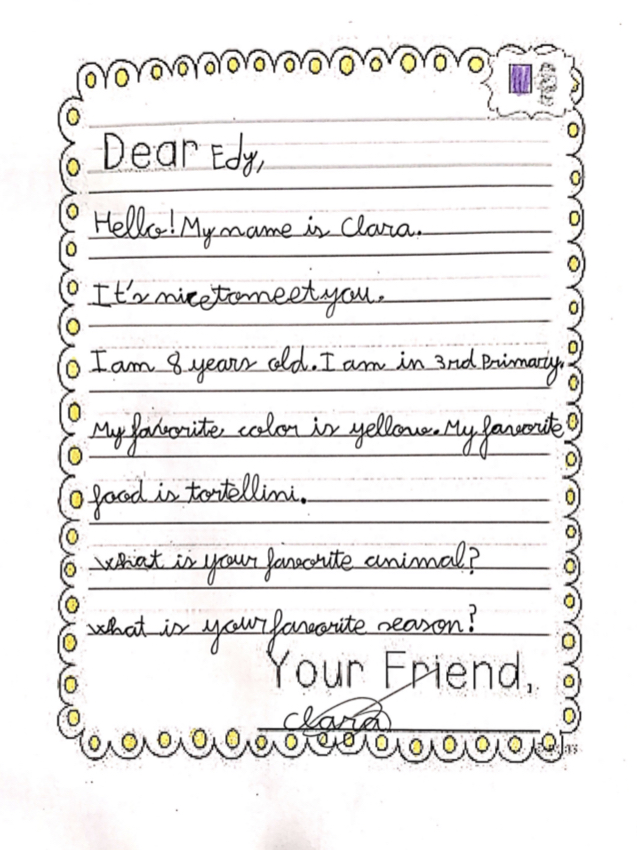 Dear Edy,
Hello! My name is Clara.
It's nice to meet you.
I am 8 years old. I am in 3rd Primary.
My favorite color is yellow. My favorite
food is tortellini.
What is your favorite animal?
What is your favorite season?
Your Friend,
Clara